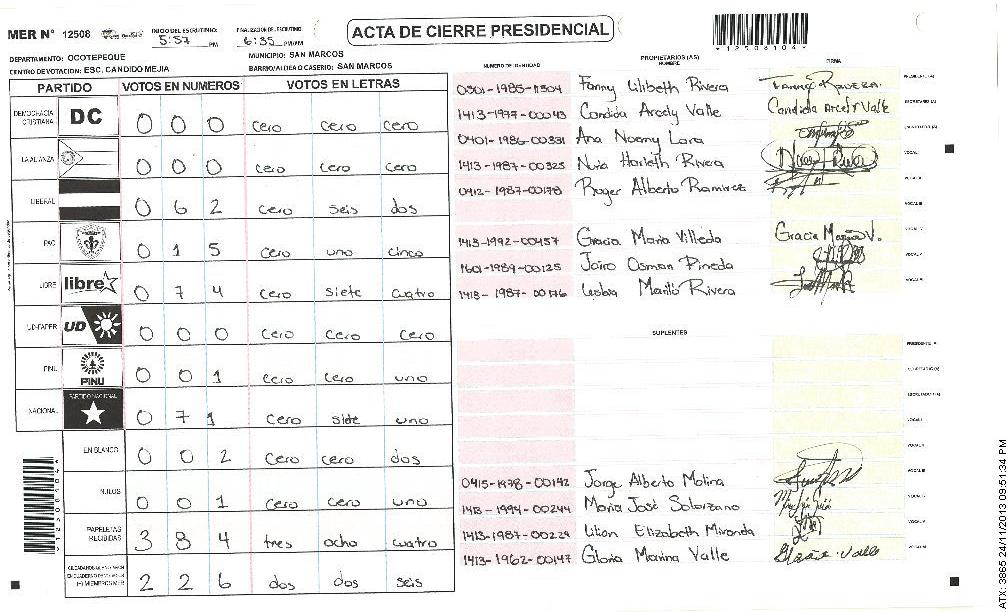 MER N° 12508
INICIO DEL ESCRUTINIO: 5:57 PM
FINALIZACION DEL ESCRUTINIO: 6:35 PM/AM
ACTA DE CIERRE PRESIDENCIAL
*12508104*
DEPARTAMENTO: OCOTEPEQUE
MUNICIPIO: SAN MARCOS
CENTRO DE VOTACION: ESC. CANDIDO MEJIA
BARRIO/ALDEA O CASERIO: SAN MARCOS
PARTIDO VOTOS EN NUMEROS VOTOS EN LETRAS
DEMOCRACIA CRISTIANA DC 0 0 0 cero cero cero
LA ALIANZA 0 0 0 cero cero cero
LIBERAL 0 6 2 cero seis dos
PAC 0 1 5 cero uno cinco
LIBRE libre 0 7 4 cero siete cuatro
UD-FAPER UD 0 0 0 cero cero cero
PINU PINU 0 0 1 cero cero uno
NACIONAL PARTIDO NACIONAL 0 7 1 cero siete uno
EN BLANCO 0 0 2 cero cero dos
NULOS 0 0 1 cero cero uno
PAPELETAS RECIBIDAS 3 8 4 tres ocho cuatro
2 2 6 dos dos seis
*12508104*
NUMERO DE IDENTIDAD PROPIETARIOS (AS) NOMBRE FIRMA
Fanny Lilibeth Rivera Fanny Rivera. PRESIDENTE (A)
1413-1977-00043 Candida Arcely Valle Candida Arcely Valle SECRETARIO (A)
0401-1986-00331 Ana Noemy Lara ESCRUTADOR (A)
1413-1987-00325 Nuria Harleth Rivera VOCAL I
0412-1987-00178 Roger Alberto Ramirez VOCAL II
VOCAL III
1413-1992-00457 Gracia Maria Villeda Gracia Maria V. VOCAL IV
1601-1989-00125 Jairo Osman Pineda VOCAL V
1413-1987-00176 Lesbia Rivera VOCAL VI
SUPLENTES
PRESIDENTE (A)
SECRETARIO (A)
ESCRUTADOR (A)
VOCAL I
VOCAL II
0415-1978-00142 Jorge Alberto Molina VOCAL III
1413-1994-00244 Maria José Solorzano VOCAL IV
1413-1987-00229 Lilian Elizabeth Miranda VOCAL V
1413-1962-00147 Gloria Marina Valle VOCAL VI
ATX: 3865 24/11/2013 09:51:34 PM